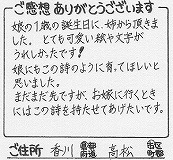 ご感想ありがとうございます
娘の1歳の誕生日に、姉から頂きま
した。とても可愛い絵や文字が
うれしかったです!
娘にもこの詩のように育ってほしいと
思いました。
まだまだ先ですが、お嫁に行くとき
にはこの詩を持たせてあげたいです。
ご住所 香川 高松